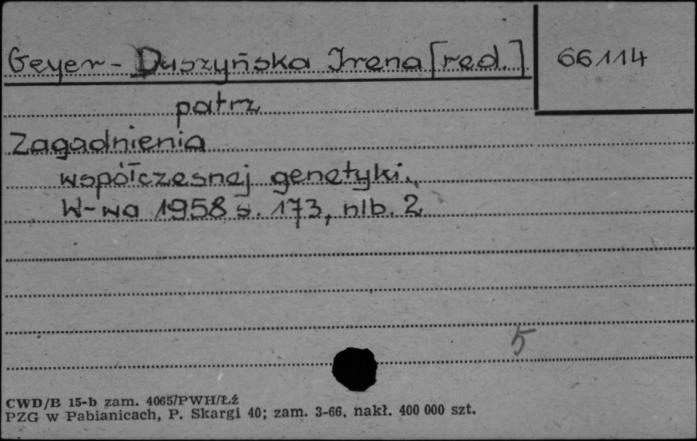 Geyer-Duszyńska Irena [red.]
66114
patrz
Zagadnienia
współczesnej genetyki.
W-wa 1958 s. 173, nlb. 2
5
CWD/B 15-b zam. 4065/PWH/Łź
PZG w Pabianicach, P. Skargi 40; zam. 3-66, nakł. 400 000 szt.